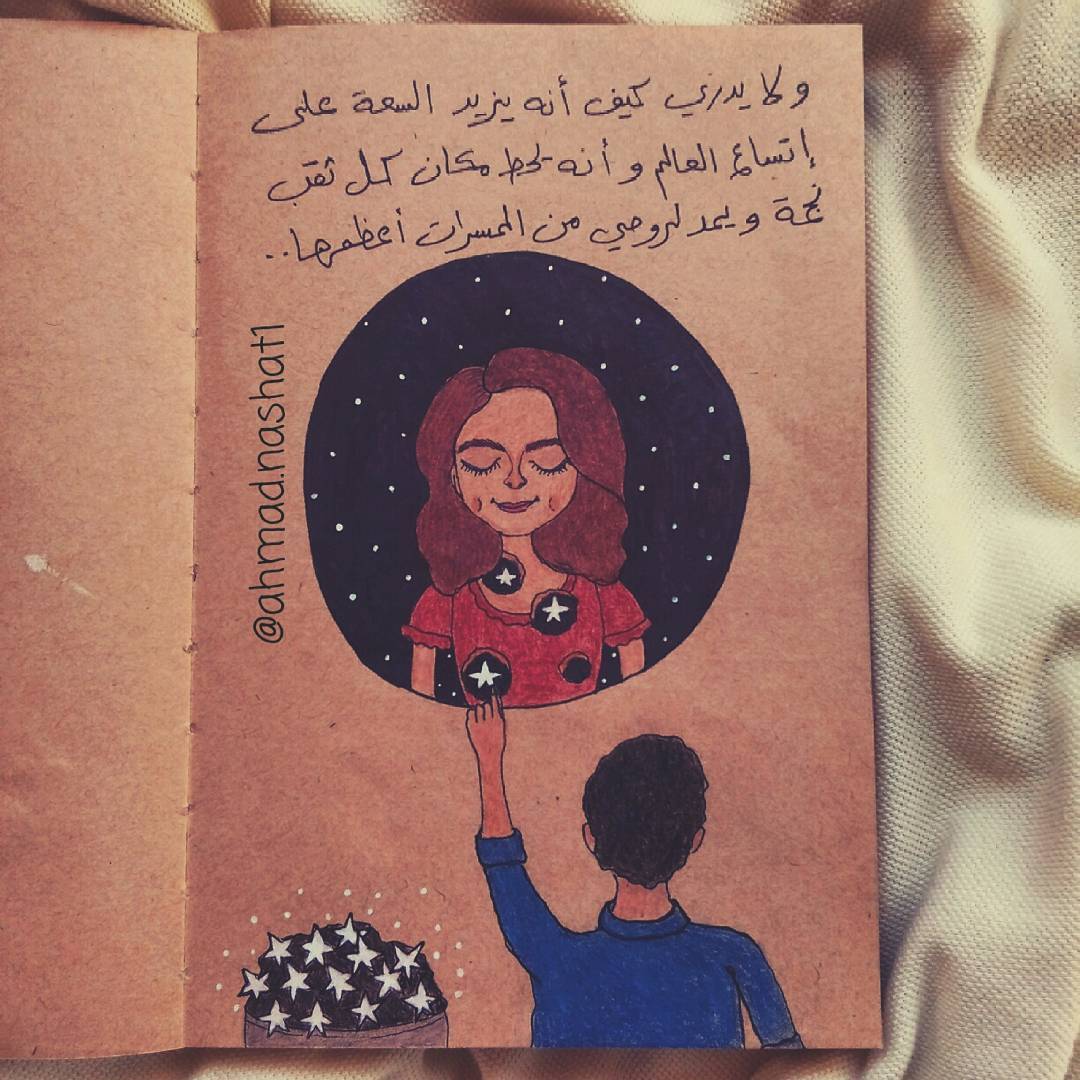 ولا يدري كيف أنه يزيد السعة على
إتساع العالم و أنه يحط مكان كل ثقب
نجمة و يمد لروحي من المسرات أعظمها..
@ahmad.nashat1